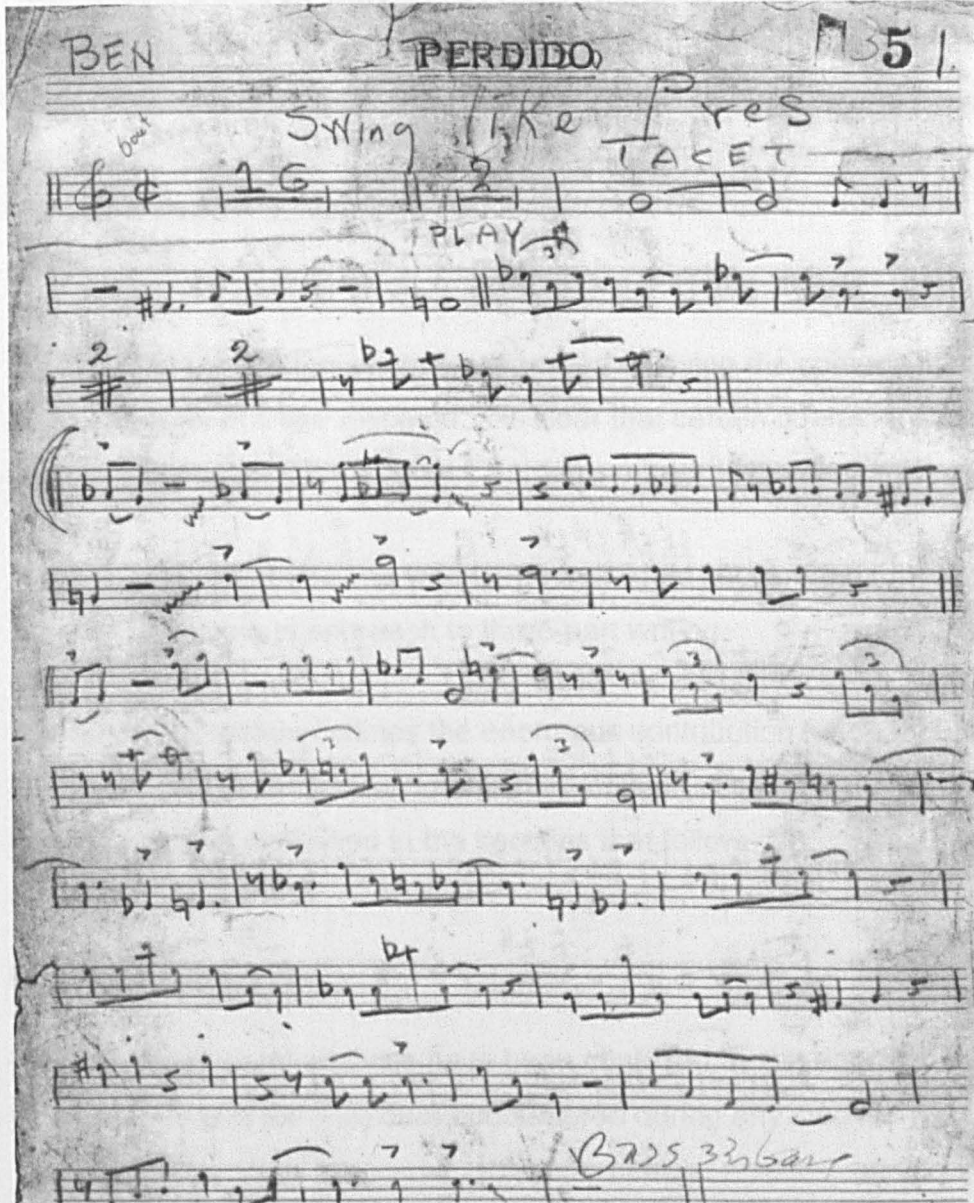 BEN PERDIDO 5 1.
Swing like Pres
TACET
16 2
PLAY 3
2 2
3 3
3 3
BASS